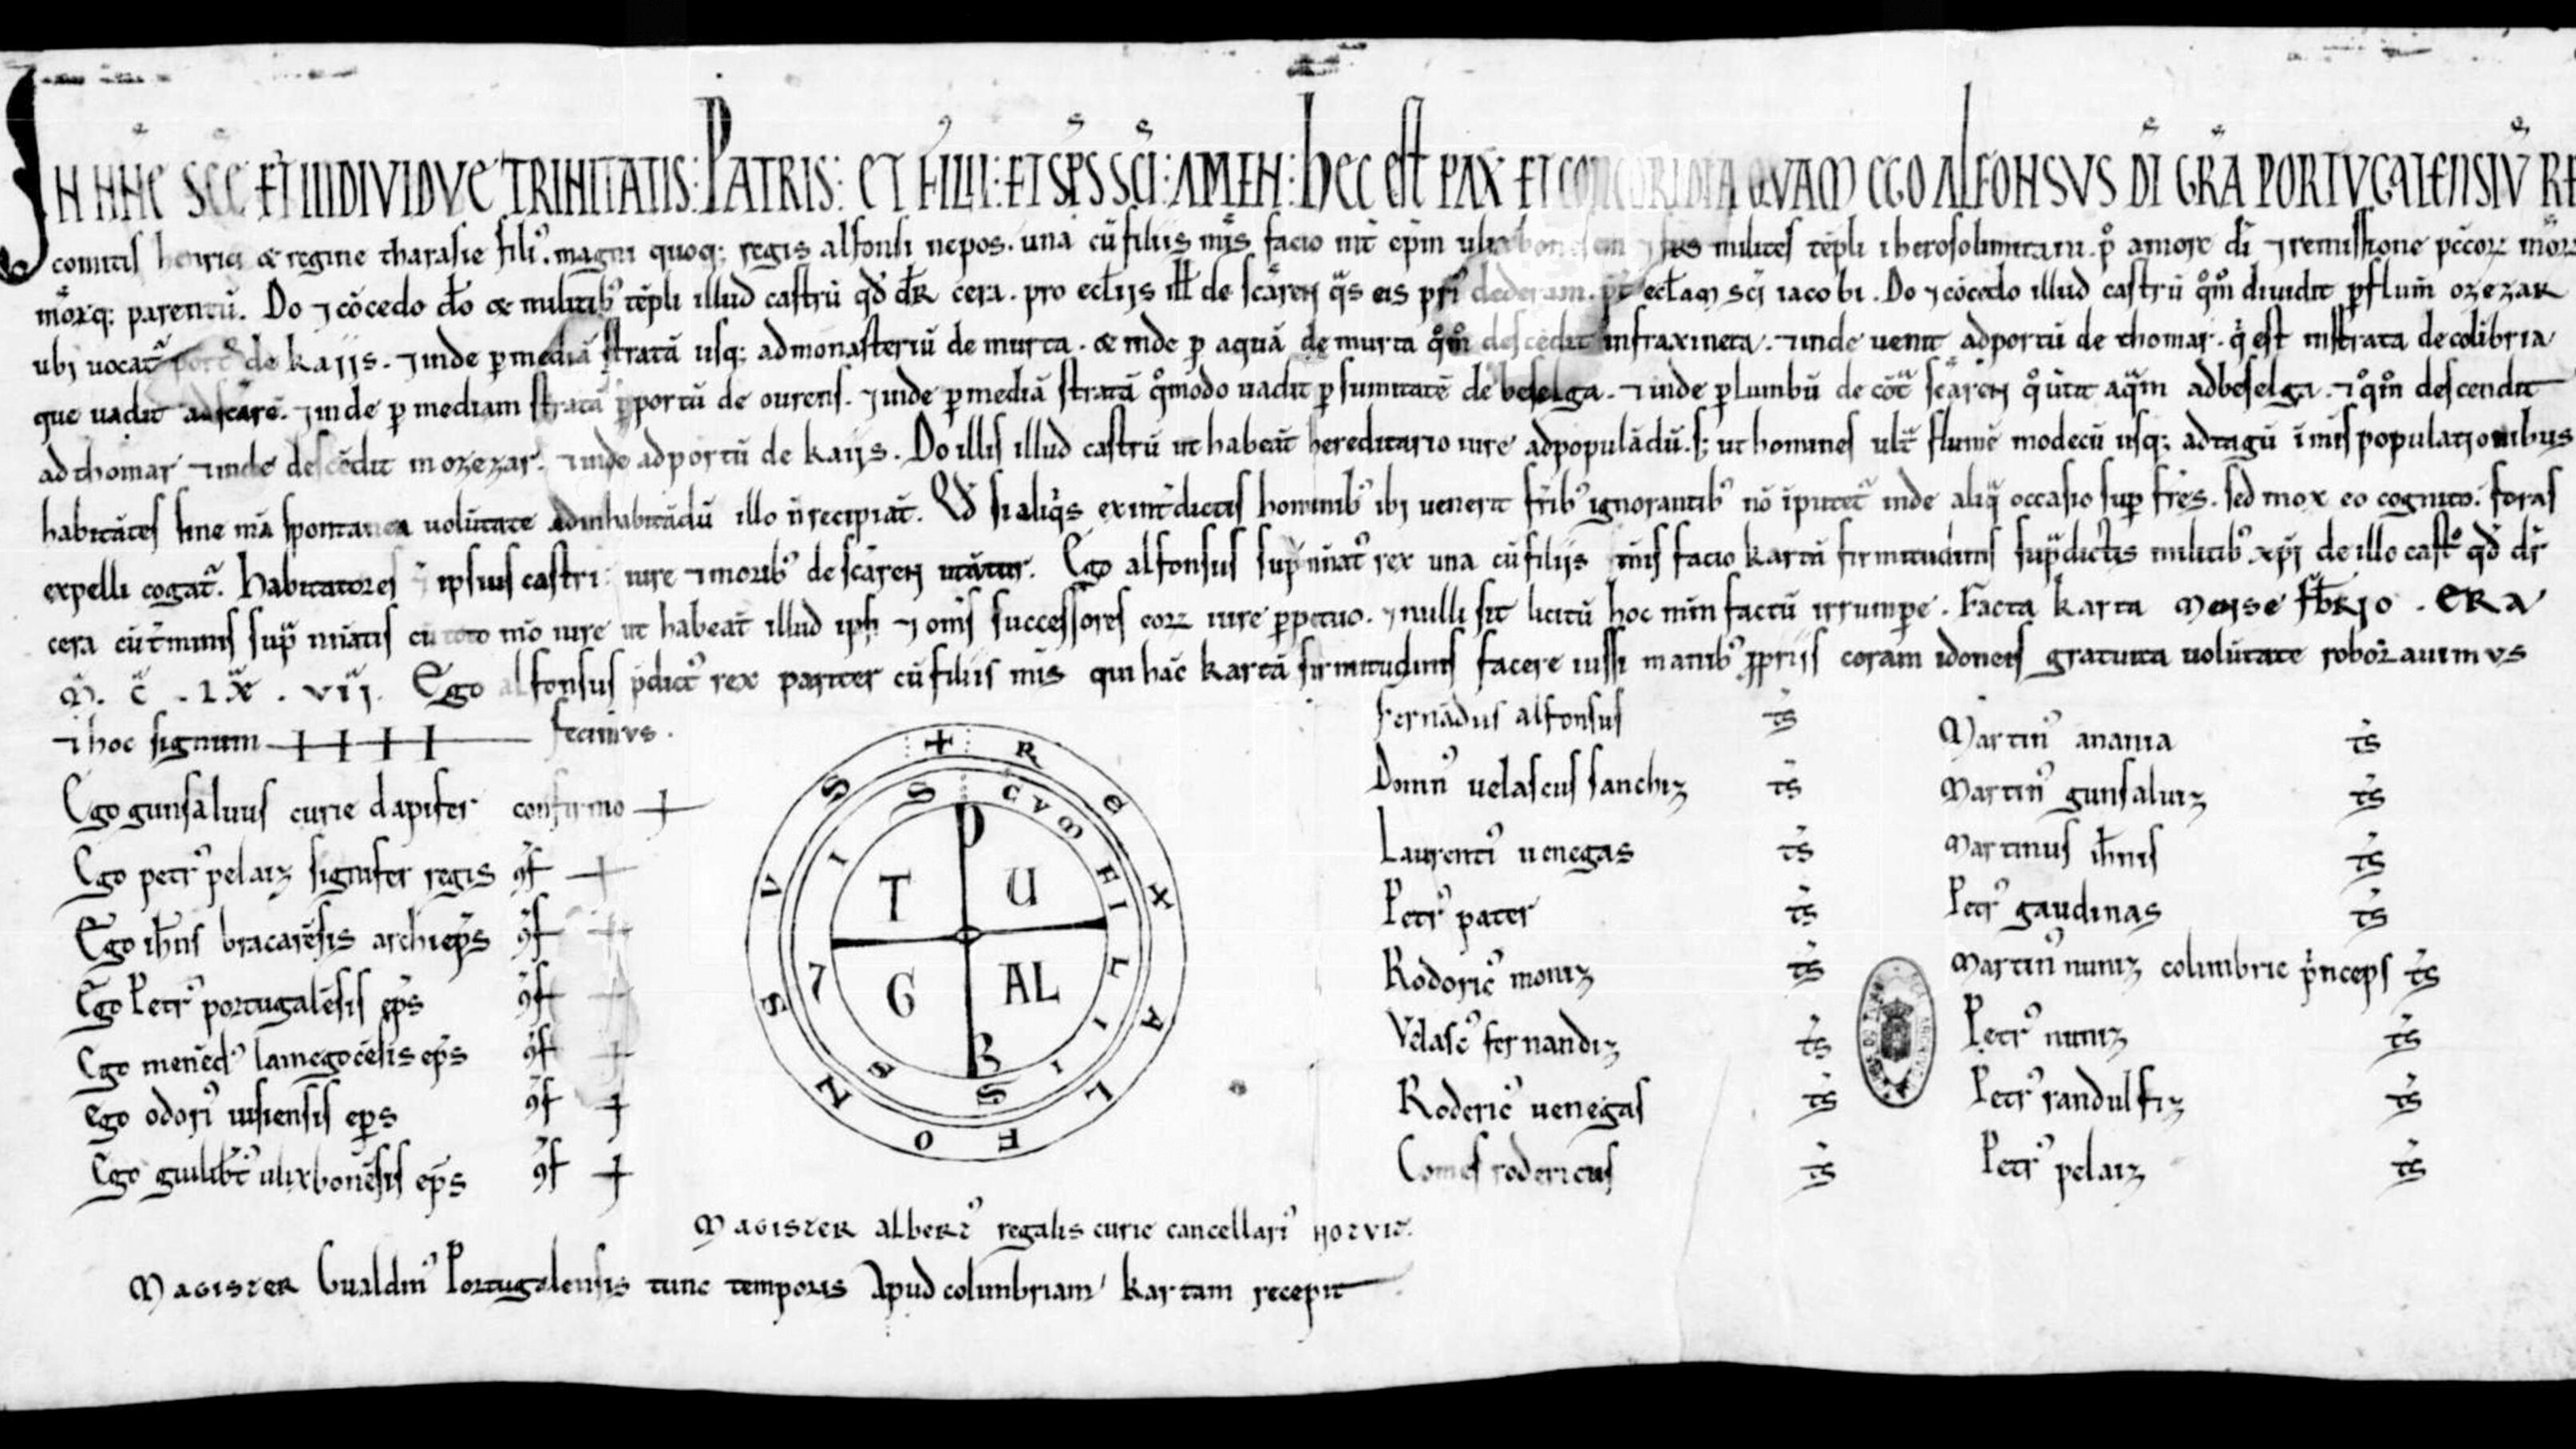 IN NNE SCE ET INDIVIDVE TRINITATIS: PATRIS: ET FILII: ET SPS SCI: AMEN: hEC EST PAX ET CONCORDIA QVAM EGO ALFONSVS DI GRA PORTVGALENSIV RE
comitis henrici & regine tharasie fili⁹. magni quoq; regis alfonsi nepos. una cū filiis mĩs facio int epm ulixbonensem ⁊ frs milites tēpli iherosolimitani. p amore di ⁊ remissione peccorꝝ mõrꝝ
mõrq; parentū. Do ⁊ cōcedo do & militib⁹ tēpli illud castrū qđ dr cera. pro eccliis illis de scāren q̃s eis pri⁹ dederam. pt ecclam sci iacobi. Do ⁊ cōcedo illud castrū q̊m̊ diuidit p flum ozezar
ubi uocat̃ port⁹ de kaiis. ⁊ inde p mediā stratā usq; ad monasteriū de murta. & inde p aquā de murta q̊m̊ descēdit in fraxineta. ⁊ inde uenit ad portū de thomar. q̃ est in strata de colibria
que uadit ad scarē. ⁊ inde p mediam stratā p portū de ourens. ⁊ inde p mediā stratā q̊modo uadit p sumitatē de beselga. ⁊ inde p lumbū de cōt̃ scāren q̊ ūtit aq̃m ad beselga. ⁊ q̊m̊ descendit
ad thomar ⁊ inde descēdit in ozezar. ⁊ inde ad portū de kaiis. Do illis illud castrū ut habeāt hereditario iure ad populādū. s; ut homines ult̃ flumē modecū usq; ad tagū ī mis populationibus
habitātes sine mā spontanea uolūtate ad inhabitādū illo ñ recipiāt. Qđ si aliq̃s ex int̃dictis hominib⁹ ibi uenerit frib⁹ ignorantib⁹ nō īputet̃ inde aliq̃ occasio sup fres. sed mox eo cognito. foras
expelli cogat̃. habitatores ipsius castri iure ⁊ morib⁹ de scāren utātur. Ego alfonsus sup nīat⁹ rex una cū filiis mīs facio kartū firmitudinis sup̃dictis militib⁹ xpi de illo castro qđ dr
cera cū t̃minis sup̃ nīatis cū toto mō iure ut habeāt illud ipsi ⁊ om̃s successores eorꝝ iure ppetuo. ⁊ nulli sit licitū hoc m̄m factū irrumpe. Facta karta mense fbrio. ERA
M̃. C̃. LX̃. VII. Ego alfonsus pdict⁹ rex pariter cū filiis mis qui hāc kartā firmitudinis facere iussi manib⁹ ꝓpriis coram idoneis gratuita uolūtate roborauimus
⁊ hoc signum ++++ fecimus.
Ego gunsaluus curie dapifer confirmo +
Ego petr⁹ pelaiz signifer regis ꝯf +
Ego ihnis bracarēsis archieps ꝯf +
Ego Petr⁹ portugalēsis eps ꝯf +
Ego menēd⁹ lamegocēsis eps ꝯf +
Ego odori⁹ uisiensis eps ꝯf +
Ego guilibt⁹ ulixbonēsis eps ꝯf +
+ REX ALFONSVS
S CVM FILIIS SE⁊IS
P T U G AL R
Fernādus alfonsus ts
Domn⁹ uelascus sanchiz ts
Laurenti⁹ uenegas ts
Petr⁹ pater ts
Rodoric⁹ moniz ts
Velasc⁹ fernandiz ts
Roderic⁹ uenegas ts
Comes rodericus ts
Martin⁹ anaia ts
Martin⁹ gunsaluiz ts
Martinus ihnis ts
Petr⁹ gaudinas ts
Martin⁹ nuniz colimbrie princeps ts
Petr⁹ nuniz ts
Petr⁹ randulfiz ts
Petr⁹ pelaiz ts
MAGISTER ALBERT⁹ regalis curie cancellari⁹ NOTVIT.
MAGISTER Gualdin⁹ Portugalensis tunc temporis Apud colimbriam kartam recepit